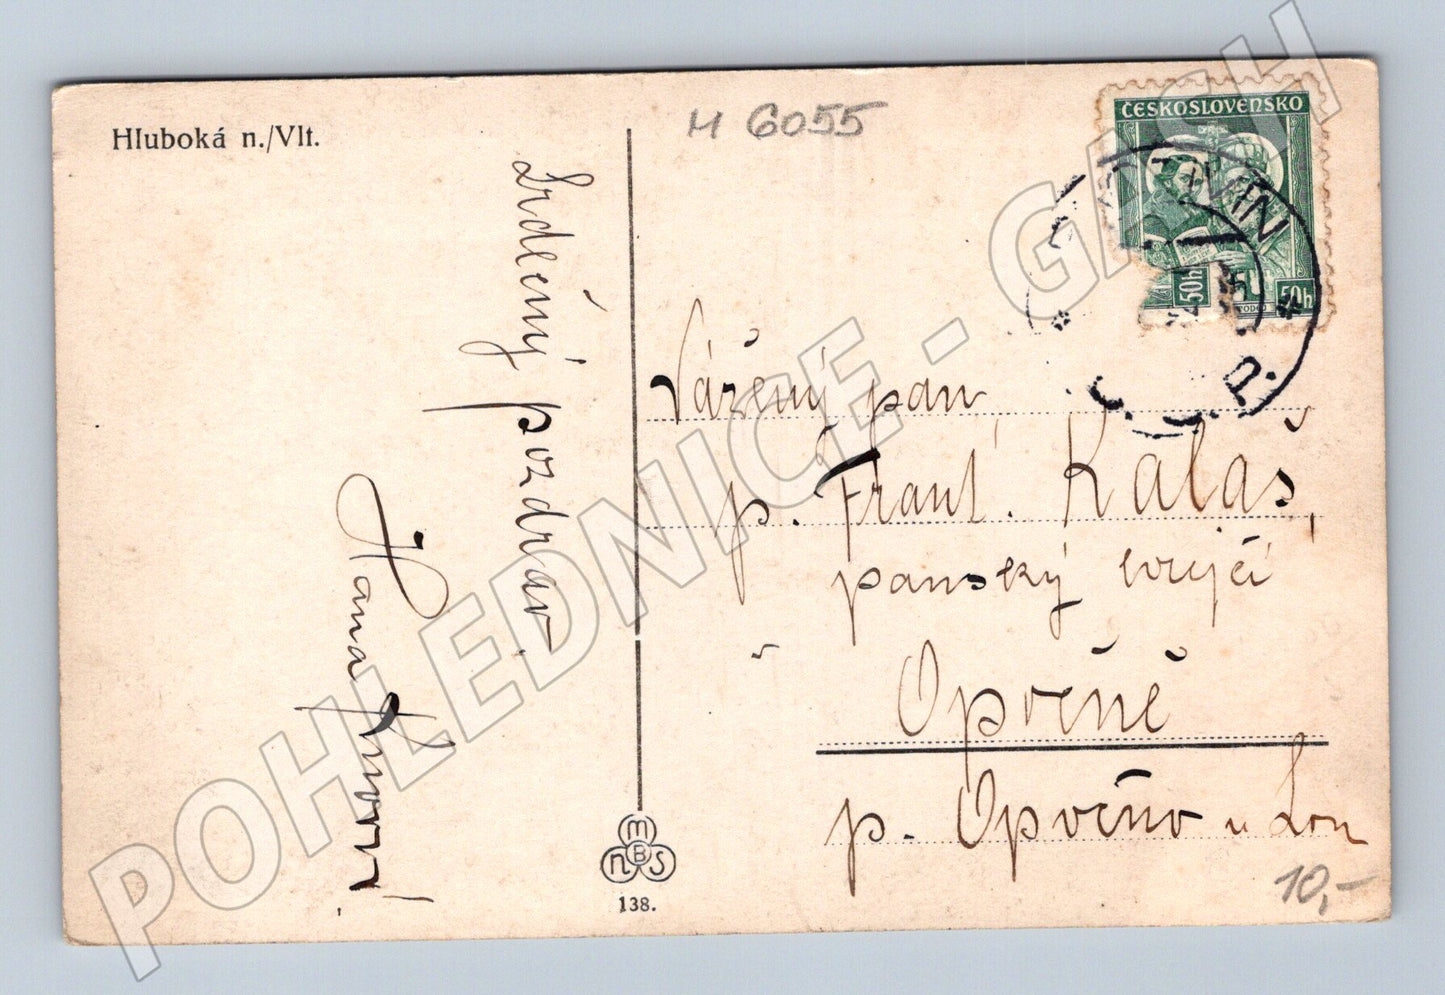 Hluboká n./Vlt.
M 6055
ČESKOSLOVENSKO
50h
50h
Č.S.P.
Srdečný pozdrav
Hana
Vážený pan
p. Frant. Kalaš,
panský krejčí
Opočně
p. Opočno u Lou
m
n B S
138.
10,-
POHLEDNICE - GACH